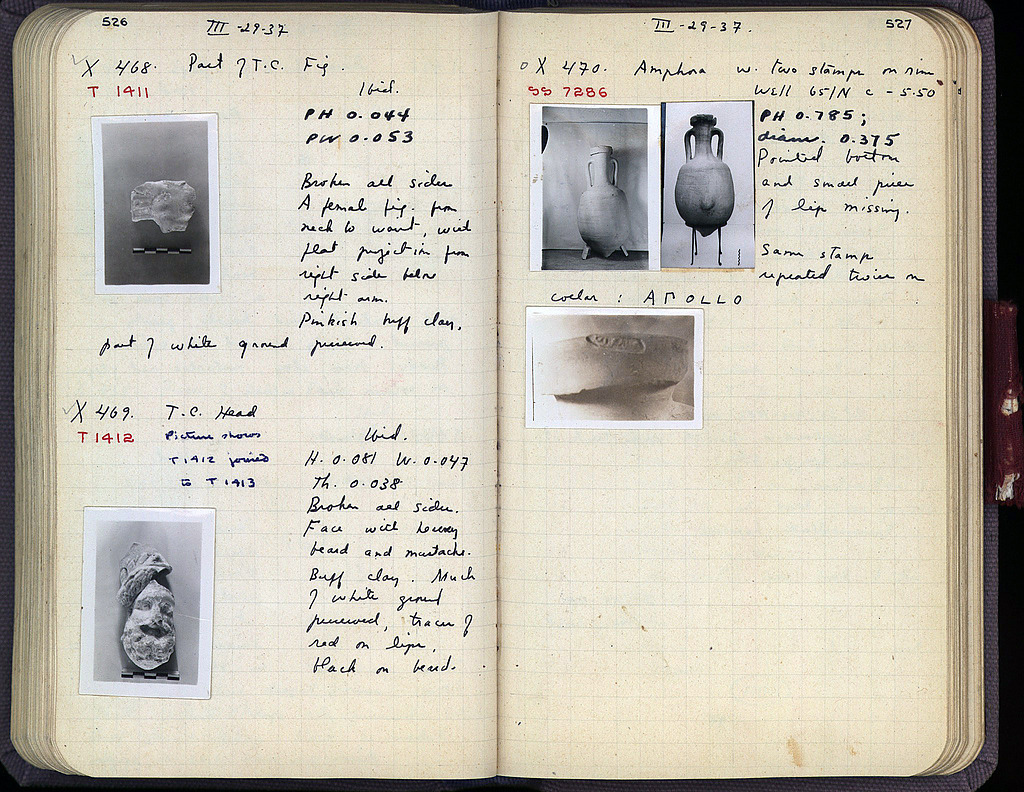 526
III -29-37
X 468. Part of T.C. Fig.
T 1411
Ibid.
PH 0.044
PW 0.053
Broken all sides
A female fig. from
neck to waist, with
flat projection from
right side below
right arm.
Pinkish buff clay,
part of white ground preserved.
X 469. T.C. Head
T 1412
Picture shows
T 1412 joined
to T 1413
Ibid.
H. 0.081 W. 0.047
Th. 0.038
Broken all sides.
Face with heavy
beard and mustache.
Buff clay. Much
of white ground
preserved, traces of
red on lips,
black on beard.
527
III -29-37.
X 470. Amphora w. two stamps on rim
SS 7286
Well 65/N c -5.50
PH 0.785;
diam. 0.375
Pointed bottom
and small piece
of lip missing.
Same stamp
repeated twice on
collar : ΑΠΟLLΟ